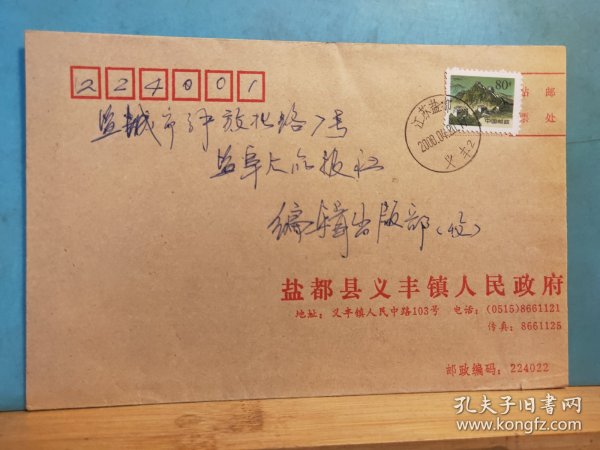 224001
80分
中国邮政
贴邮
票处
江苏盐城
2000.04.20
义丰2
盐城市解放北路7号
盐阜大众报社
编辑出版部(收)
盐都县义丰镇人民政府
地址：义丰镇人民中路103号 电话：(0515)8661121
传真：8661125
邮政编码：224022
孔夫子旧书网
www.kongfz.com